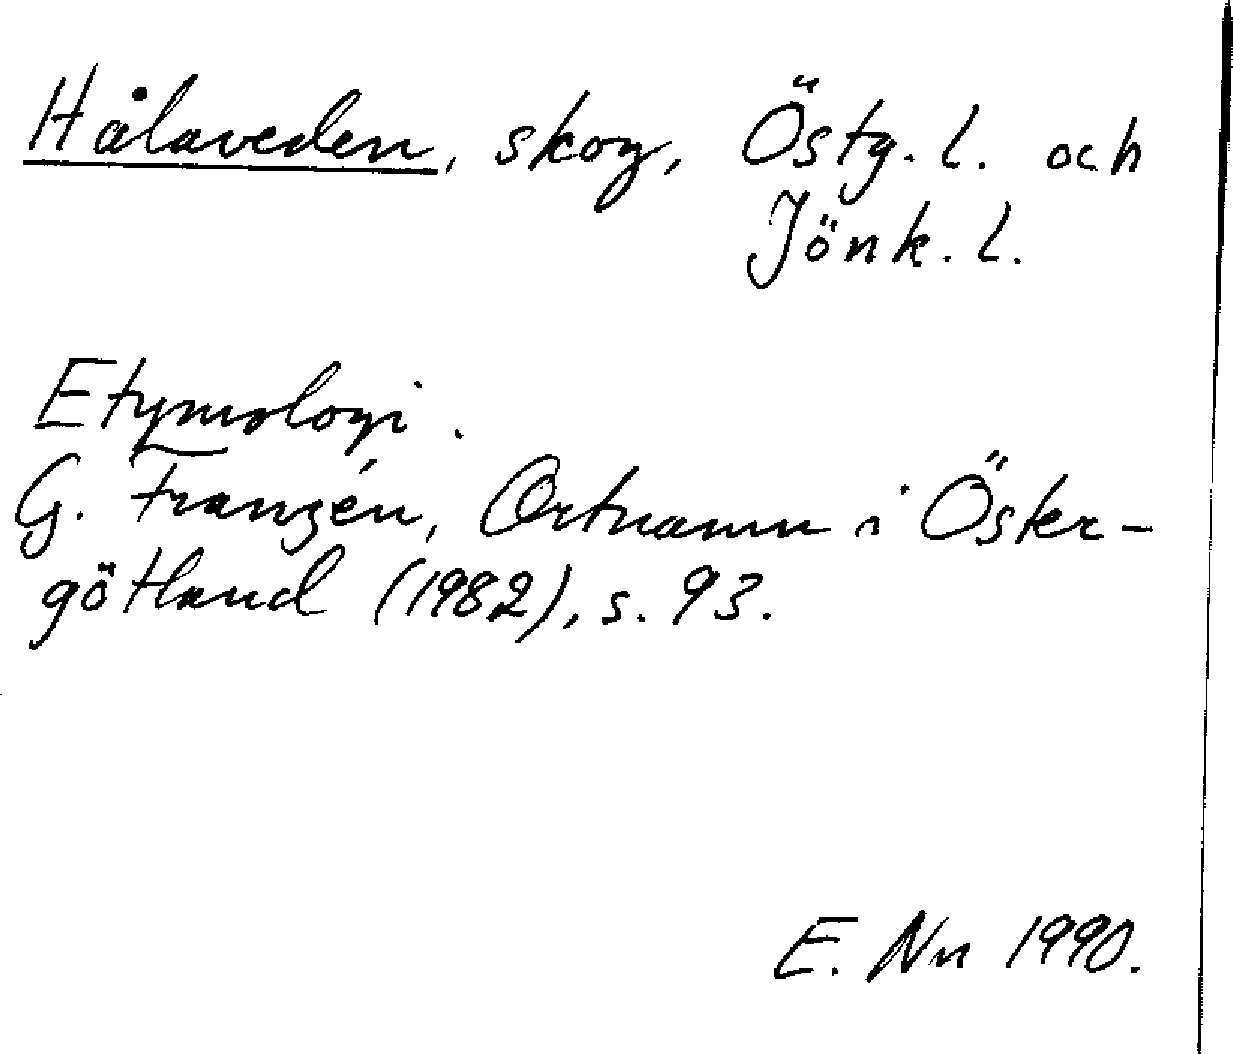 Hålaveden, skog, Östg. l. och
Jönk. l.
Etymologi.
G. Franzén, Ortnamn i Öster-
götland (1982), s. 93.
E. Nn 1990.